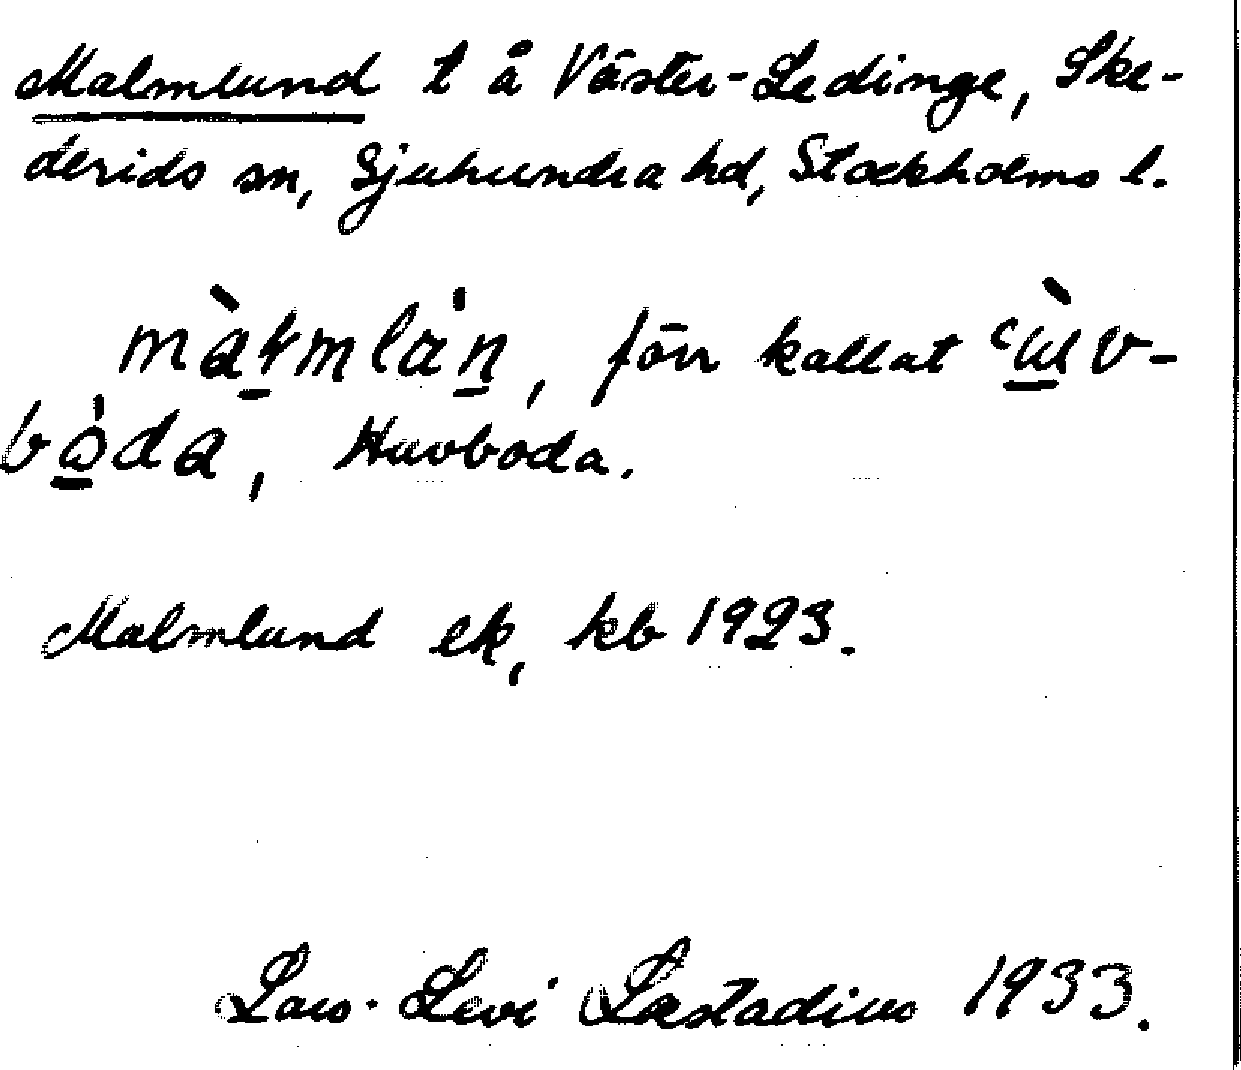 Malmlund t å Väster-Ledinge, Ske-
derids sn, Sjuhundra hd, Stockholms l.
förr kallat
Huvboda.
Malmlund ek, kb 1923.
Lars-Levi Læstadius 1933.